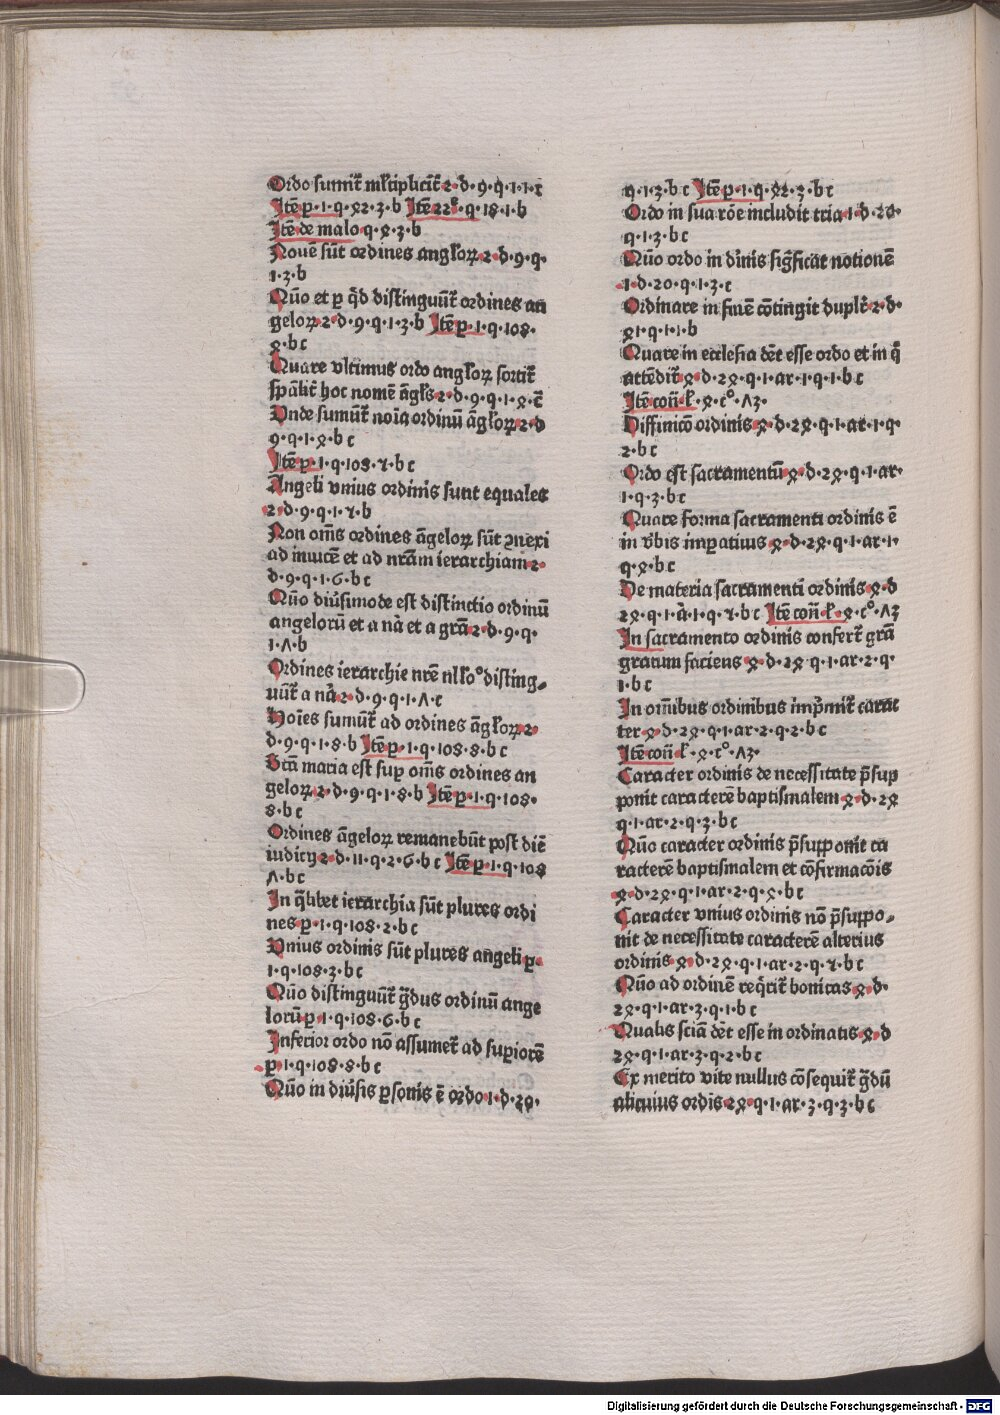 Ordo sumit̄ ml̄tiplicit̄ 2·d·9·q·1·1·c
Itē p̲·1·q·ꝝ2·3·b Itē 22ͤ·q·18·1·b
Itē de malo q·ꝝ·3·b
Nouē sūt ordines angl̄oꝝ 2·d·9·q·
1·2·b
Qūo et p̲ q̄d distinguūt̄ ordines an
geloꝝ 2·d·9·q·1·3·b Itē p̲·1·q·108·
ꝝ·b c
Quare vltimus ordo angl̄oꝝ sortit̄
sp̄alit̄ hoc nomē āgl̄s 2·d·9·q·1·ꝝ·c̄
Vnde sumūt̄ noīa ordinū āgl̄oꝝ 2·d
9·q·1·ꝝ·b c
Itē p̲·1·q·108·ꝛ·b c
Angeli vnius ordinis sunt equales
2·d·9·q·1·ꝛ·b
Non om̄s ordines āgeloꝝ sūt ꝯnexi
ad inuicē et ad nr̄am ierarchiam 2·
d·9·q·1·6·b c
Qūo diūsimode est distinctio ordinū
angelorū et a nā et a grā 2·d·9·q·
1·ʌ·b
Ordines ierarchie nrē nl̄lo° disting⸗
uūt̄ a nā 2·d·9·q·1·ʌ·c
Hoīes sumūt̄ ad ordines āgl̄oꝝ 2·
d·9·q·1·8·b Itē p̲·1·q·108·8·b c
Sc̄a maria est sup̲ om̄s ordines an
geloꝝ 2·d·9·q·1·8·b Itē p̲·1·q·108·
8·b c
Ordines āgeloꝝ remanebūt post diē
iudicij 2·d·11·q·2·6·b c Itē p̲·1·q·108
ʌ·b c
In q̄libet ierarchia sūt plures ordi
nes p̲·1·q·108·2·b c
Vnius ordinis sūt plures angeli p̲·
1·q·108·3·b c
Qūo distinguūt̄ ḡdus ordinū ange
lorū p̲·1·q·108·6·b c
Inferior ordo nō assumet̄ ad sup̲iorē
p̲·1·q·108·8·b c
Qūo in diūsis p̲sonis ē ordo 1·d·20·
q·1·3·b c Itē p̲·1·q·ꝝ2·3·b c
Ordo in sua rōe includit tria 1·d·20·
q·1·3·b c
Qūo ordo in dīnis sigīficat notionē
1·d·20·q·1·3·c
Ordinare in finē cōtingit dupl̄r 2·d·
ꝝ1·q·1·1·b
Quare in ecclesia dēt esse ordo et in q̄
attēdit̄ ꝝ·d·2ꝝ·q·1·ar·1·q·1·b c
Itē coñ·l̄·ꝝ·c°·ʌ3·
Diffinicō ordinis ꝝ·d·2ꝝ·q·1·ar·1·q·
2·b c
Ordo est sacramentū ꝝ·d·2ꝝ·q·1·ar·
1·q·3·b c
Quare forma sacramenti ordinis ē
in v̄bis imp̲atiuis ꝝ·d·2ꝝ·q·1·ar·1·
q·ꝝ·b c
De materia sacramenti ordinis ꝝ·d
2ꝝ·q·1·ā·1·q·ꝛ·b c Itē coñ·l̄·ꝝ·c°·ʌ3
In sacramento ordinis confert̄ grā
gratum faciens ꝝ·d·2ꝝ·q·1·ar·2·q·
1·b c
In omībus ordinibus imp̄mit̄ carac
ter ꝝ·d·2ꝝ·q·1·ar·2·q·2·b c
Itē coñ l̄·ꝝ·c°·ʌ3·
Caracter ordinis de necessitate p̄sup
ponit caracterē baptismalem ꝝ·d·2ꝝ
q·1·ar·2·q·3·b c
Qūo caracter ordinis p̄supponit ca
racterē baptismalem et cōfirmacōis
ꝝ·d·2ꝝ·q·1·ar·2·q·ꝝ·b c
Caracter vnius ordinis nō p̄suppo⸗
nit de necessitate caracterē alterius
ordinis ꝝ·d·2ꝝ·q·1·ar·2·q·ꝛ·b c
Qūo ad ordinē req̄rit̄ bonitas ꝝ·d·
2ꝝ·q·1·ar·3·q·1·b c
Qualis sciā dēt esse in ordinatis ꝝ·d
2ꝝ·q·1·ar·3·q·2·b c
Ex merito vite nullus cōsequit̄ ḡdū
alicuius ordīs 2ꝝ·q·1·ar·3·q·3·b c
Digitalisierung gefördert durch die Deutsche Forschungsgemeinschaft - DFG